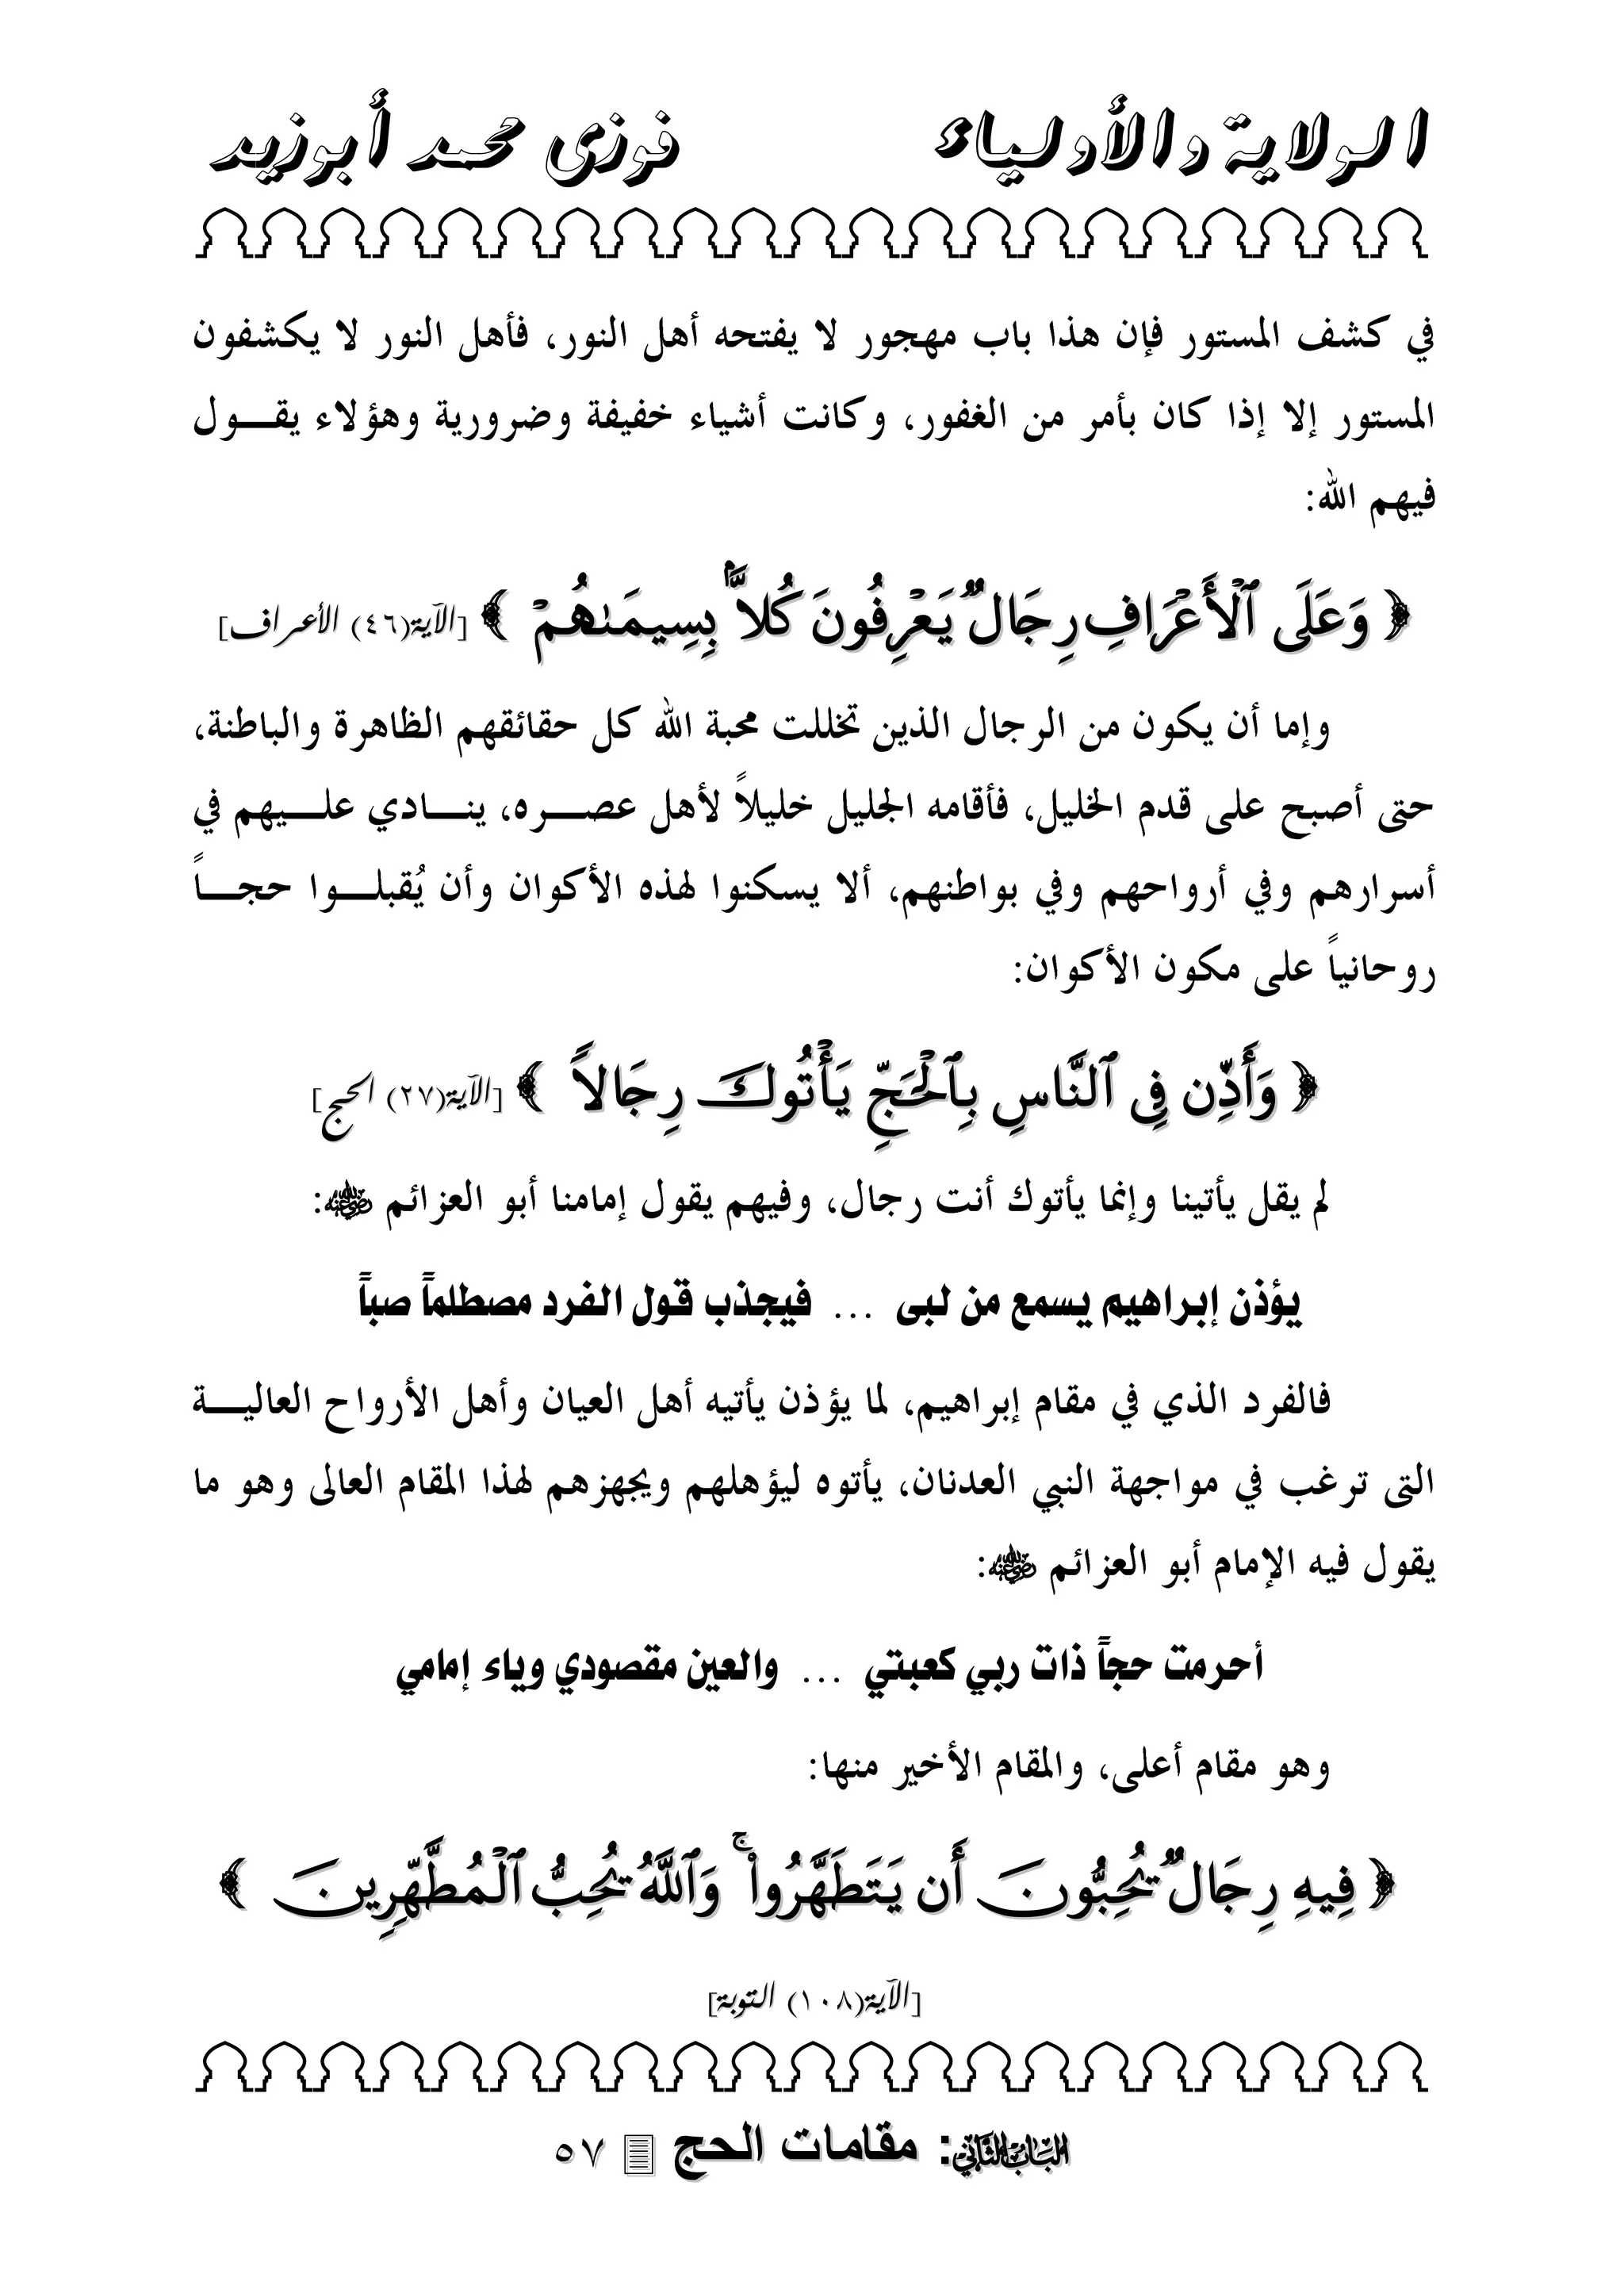 الولاية والأولياء فوزى محمد أبوزيد
في كشف المستور فإن هذا باب مهجور لا يفتحه أهل النور، فأهل النور لا يكشفون
المستور إلا إذا كان بأمر من الغفور، وكانت أشياء خفيفة وضرورية وهؤلاء يقـــول
فيهم الله:
﴿ وَعَلَى ٱلْأَعْرَافِ رِجَالٌ يَعْرِفُونَ كُلاًّۢ بِسِيمَىٰهُمْ ﴾ [الآية(٤٦) الأعراف]
وإما أن يكون من الرجال الذين تخللت محبة الله كل حقائقهم الظاهرة والباطنة،
حتى أصبح على قدم الخليل، فأقامه الجليل خليلاً لأهل عصـــره، ينـــادي علـــيهم في
أسرارهم وفي أرواحهم وفي بواطنهم، ألا يسكنوا لهذه الأكوان وأن يُقبلـــوا حجـــاً
روحانياً على مكون الأكوان:
﴿ وَأَذِّن فِى ٱلنَّاسِ بِٱلْحَجِّ يَأْتُوكَ رِجَالاً ﴾ [الآية(٢٧) الحج]
لم يقل يأتينا وإنما يأتوك أنت رجال، وفيهم يقول إمامنا أبو العزائم رضي الله عنه:
يؤذن إبراهيم يسمع من لبى ... فيجذب قول الفرد مصطلماً صباً
فالفرد الذي في مقام إبراهيم، لما يؤذن يأتيه أهل العيان وأهل الأرواح العاليـــة
التى ترغب في مواجهة النبي العدنان، يأتوه ليؤهلهم ويجهزهم لهذا المقام العالى وهو ما
يقول فيه الإمام أبو العزائم رضي الله عنه:
أحرمت حجاً ذات ربي كعبتي ... والعين مقصودي وياء إمامي
وهو مقام أعلى، والمقام الأخير منها:
﴿ فِيهِ رِجَالٌ يُحِبُّونَ أَن يَتَطَهَّرُوا۟ ۚ وَٱللَّهُ يُحِبُّ ٱلْمُطَّهِّرِينَ ﴾
[الآية(١٠٨) التوبة]
الباب الثاني: مقامات الحج ٥٧